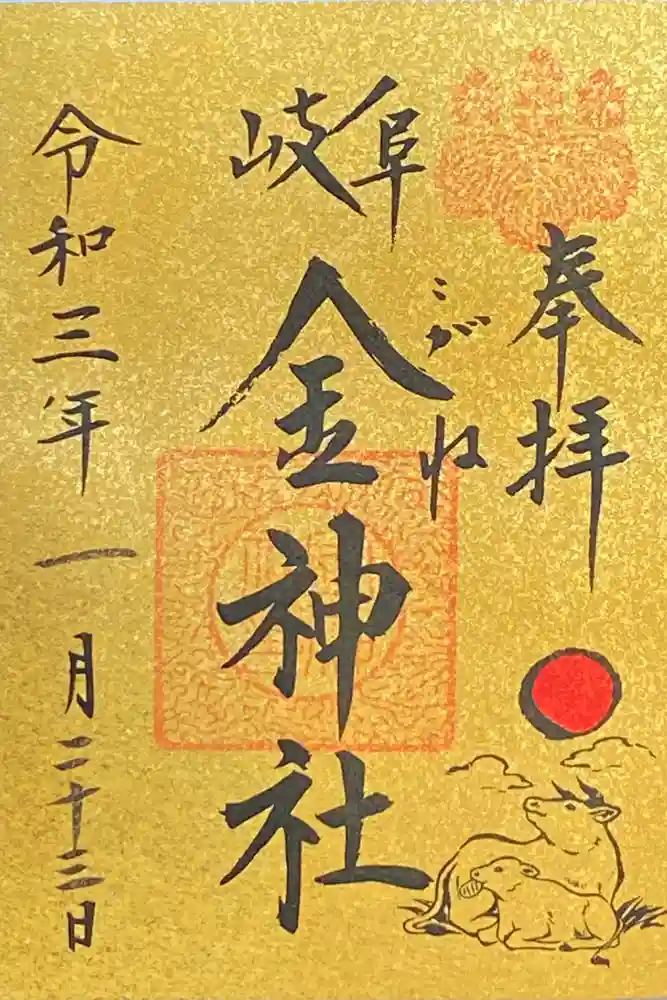 奉拝
岐阜
こがね
金神社
令和三年一月二十三日